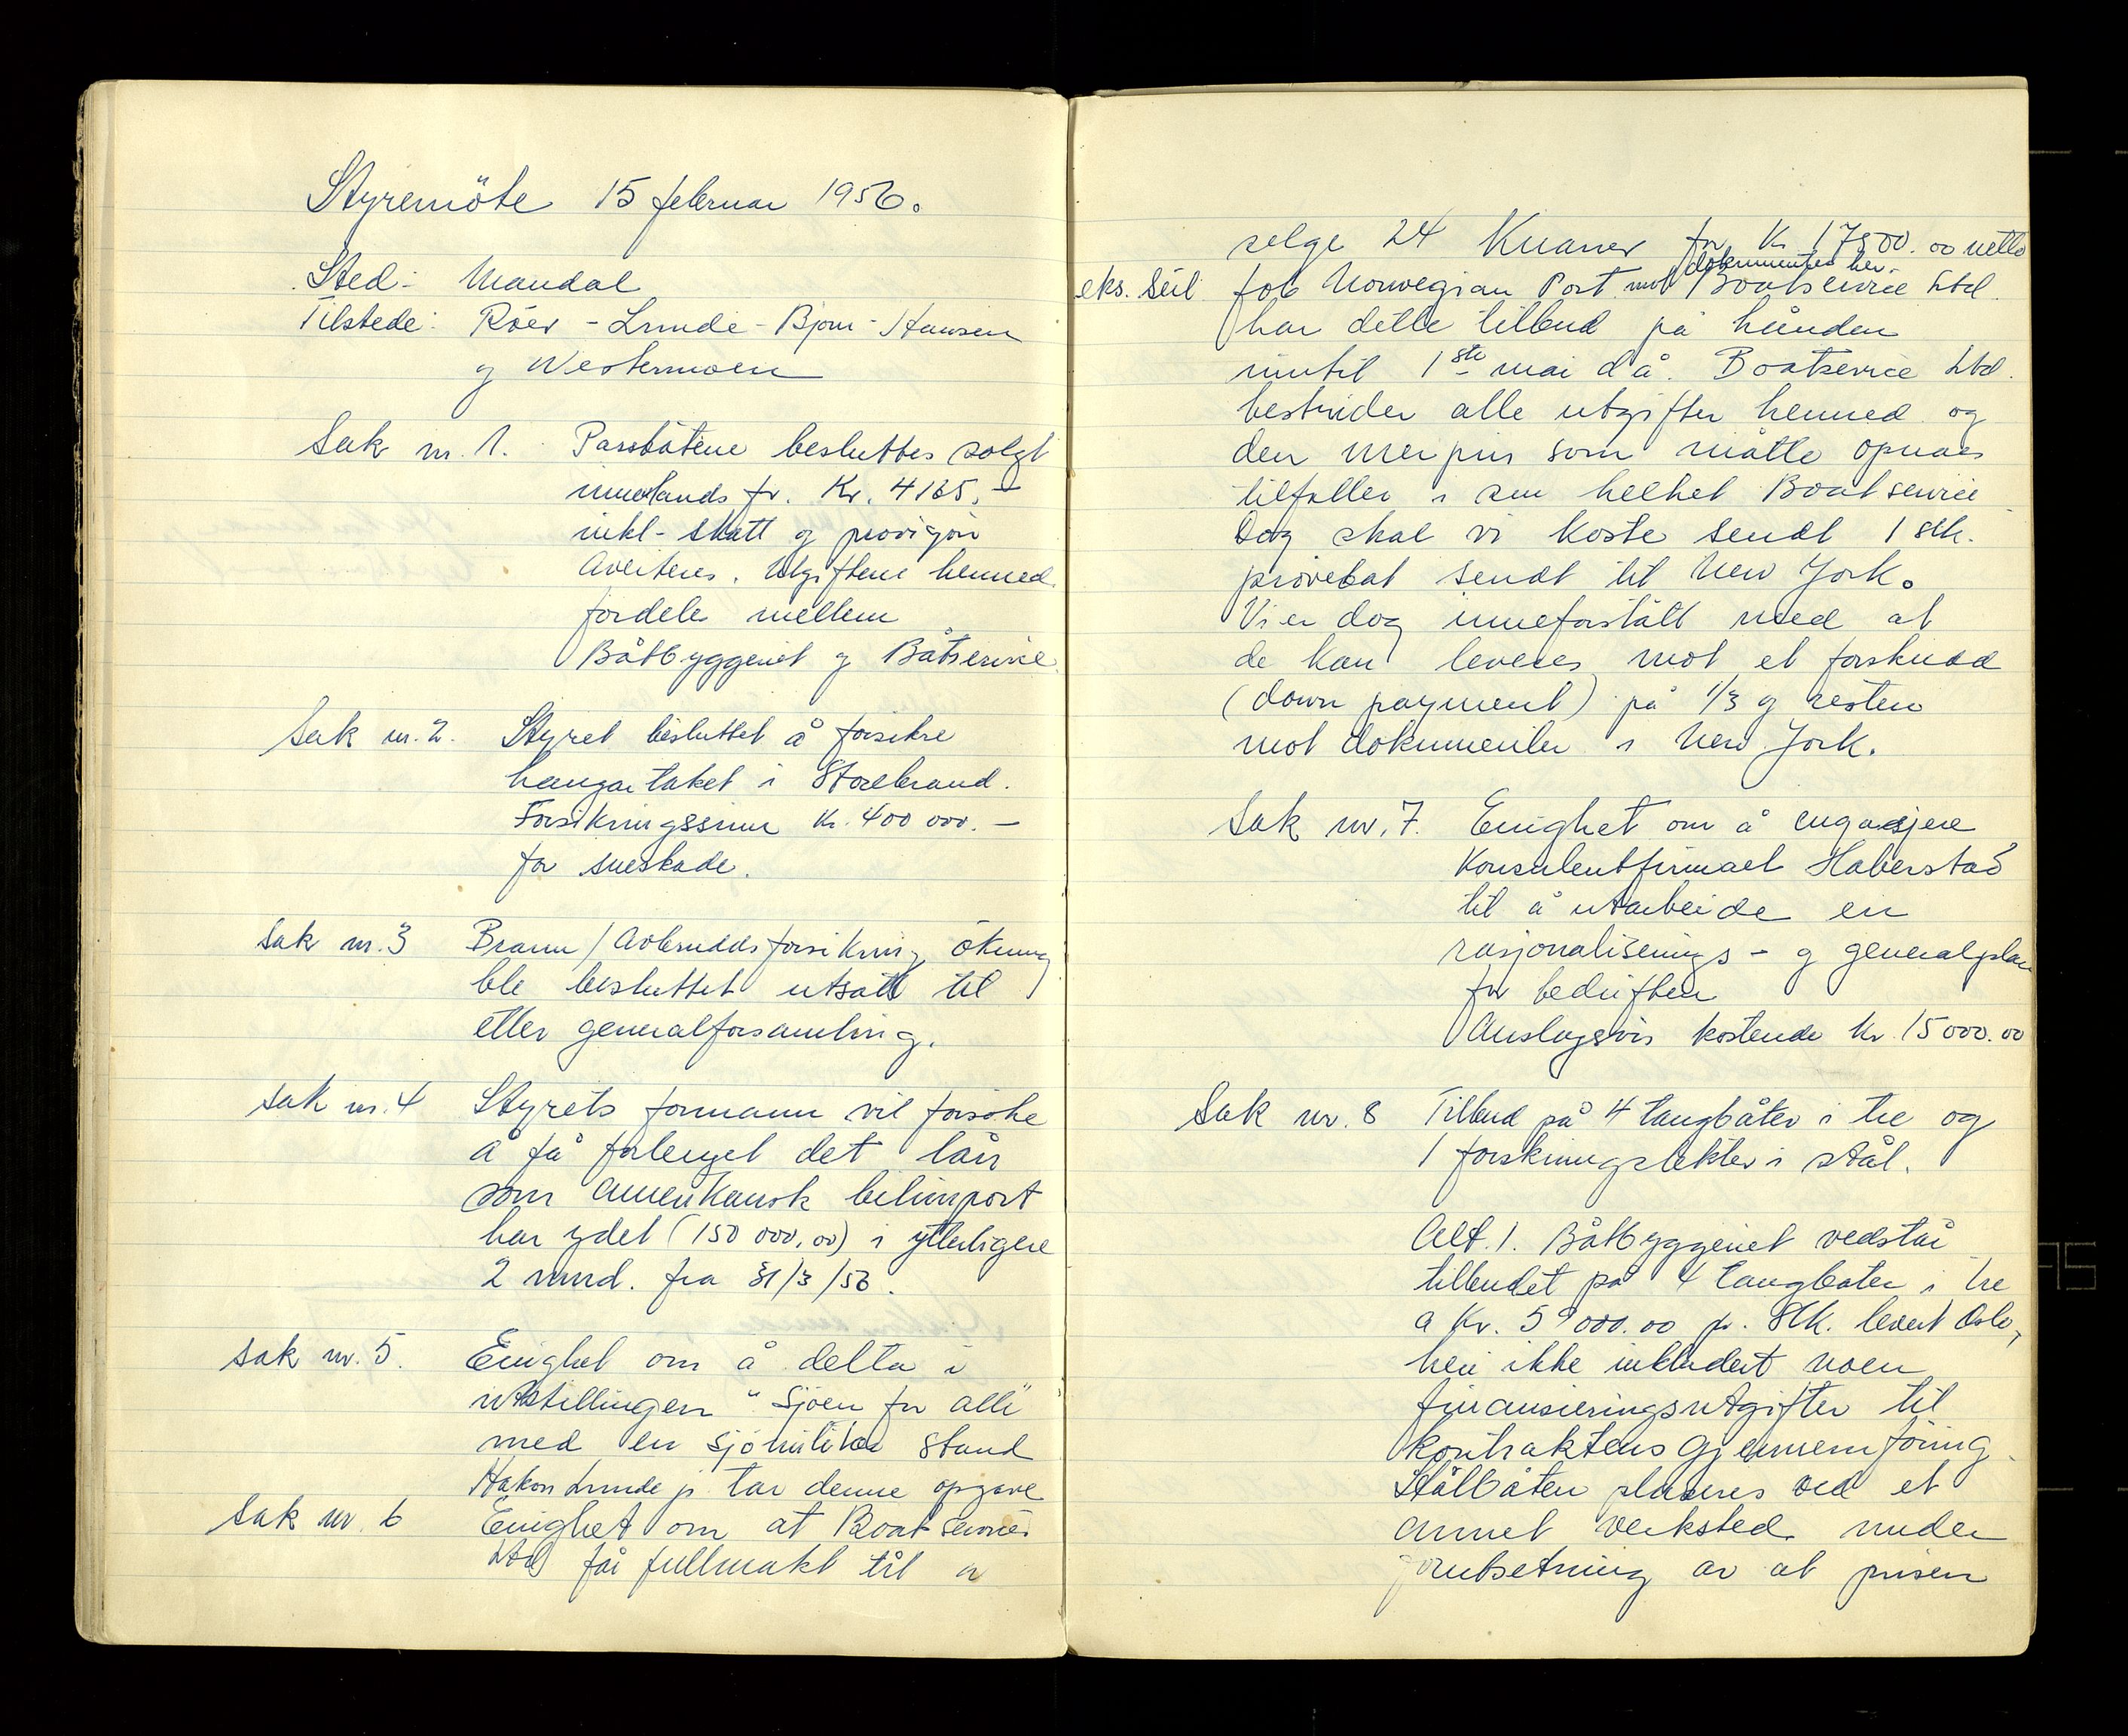 Styremöte 15 februar 1956.
Sted: Mandal
Tilstede: Röer - Lunde - Bjorn-Hansen
og Westermoen
Sak nr. 1. Parsbåtene besluttes solgt
innenlands for. Kr. 4165.-
inkl- skatt og provisjon
Averteres. Utgiftene hermed
fordeles mellem
Båtbyggeriet og Båtservice
Sak nr. 2. Styret besluttet å forsikre
hangartaket i Storebrand.
Forsikringssum Kr. 400 000.-
for sneskade.
Sak nr. 3 Brann/Avbruddsforsikring ökning
ble besluttet utsatt til
etter generalforsamling.
Sak nr. 4 Styrets formann vil forsöke
å få forlenget det lån
som amerikansk bilimport
har ydet (150 000,00) i ytterligere
2 mnd. fra 31/3/56.
Sak nr. 5. Enighet om å delta i
utstillingen "Sjöen for alle"
med en stand
Håkon Lunde jr tar denne opgave
Sak nr. 6 Enighet om at Boatservice
Ltd får fullmakt til å
selge 24 Knarrer for Kr 17500.00 netto
dokumenter her.
eks. seil fob Norwegian Port mot Boatservice Ltd.
har dette tilbud på hånden
inntil 1ste mai d å. Boatservice Ltd.
bestrider alle utgifter hermed og
den merpris som måtte opnaes
tilfaller i sin helhet Boatservice
Dog skal vi koste sendt 1 stk.
prövebåt sendt til New York.
Vi er dog inneforstått med at
de kan leveres mot et forskudd
(down payment) på 1/3 og resten
mot dokumenter i New York.
Sak nr. 7. Enighet om å engasjere
Konsulentfirmaet Haberstad
til å utarbeide en
rasjonaliserings- og generalplan
for bedriften
Anslagsvis kostende Kr 15 000.00
Sak nr. 8 Tilbud på 4 tangbåter i tre og
1 forskningslekter i stål.
Alt. 1. Båtbyggeriet vedstår
tilbudet på 4 tangbåter i tre
a Kr. 59000.00 pr. Stk. levert Oslo,
heri ikke inkludert noen
finansieringsutgifter til
kontraktens gjennemföring.
Stålbåten plaseres ved et
annet verksted under
forutsetning av at prisen